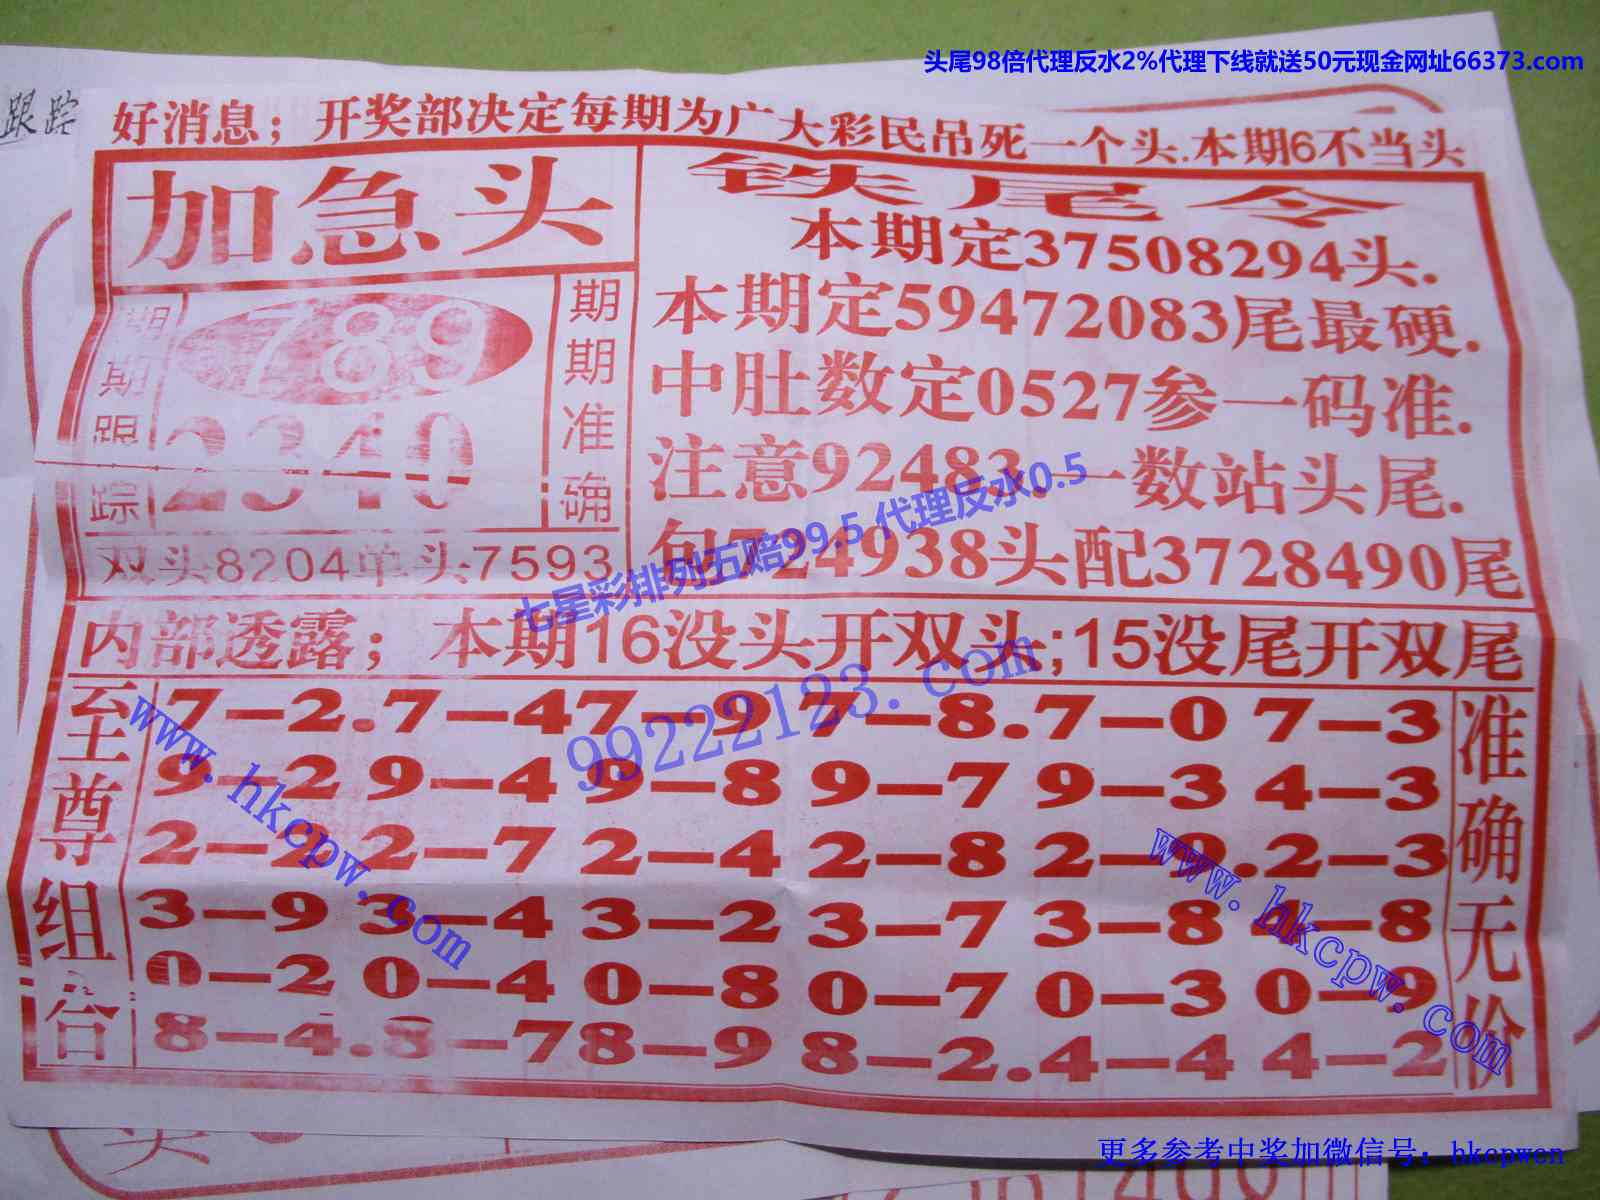 头尾98倍代理反水2%代理下线就送50元现金网址66373.com
跟踪
好消息；开奖部决定每期为广大彩民吊死一个头.本期6不当头
加急头
期期跟踪
789
2340
期期准确
双头8204单头7593
铁尾令
本期定37508294头.
本期定59472083尾最硬.
中肚数定0527参一码准.
注意92483.一数站头尾.
包 24938头配3728490尾
七星彩排列五赔99.5 代理反水0.5
内部透露；本期16没头开双头;15没尾开双尾
99222123.com
至尊组合
7–2.7–47–9 7–8.7–0 7–3
9–2 9–4 9–8 9–7 9–3 4–3
2–2 2–7 2–4 2–8 2–9.2–3
3–9 3–4 3–2 3–7 3–8 4–8
0–2 0–4 0–8 0–7 0–3 0–9
8–4.8–78–9 8–2.4–4 4–2
准确无价
www.hkcpw.com
www.hkcpw.com
更多参考中奖加微信号：hkcpwcn